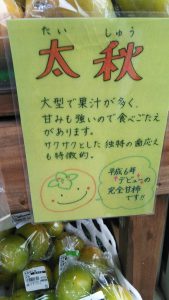 たい しゅう
太秋
大型で果汁が多く、
甘みも強いので食べごたえ
があります。
サクサクとした独特の歯応え
も特徴的。
平成6年
デビューの
完全甘柿
です!!